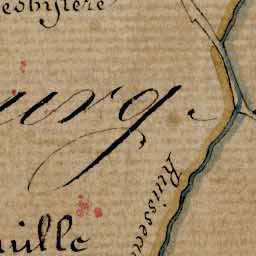 esbytère
urg.
Ruissea
uille